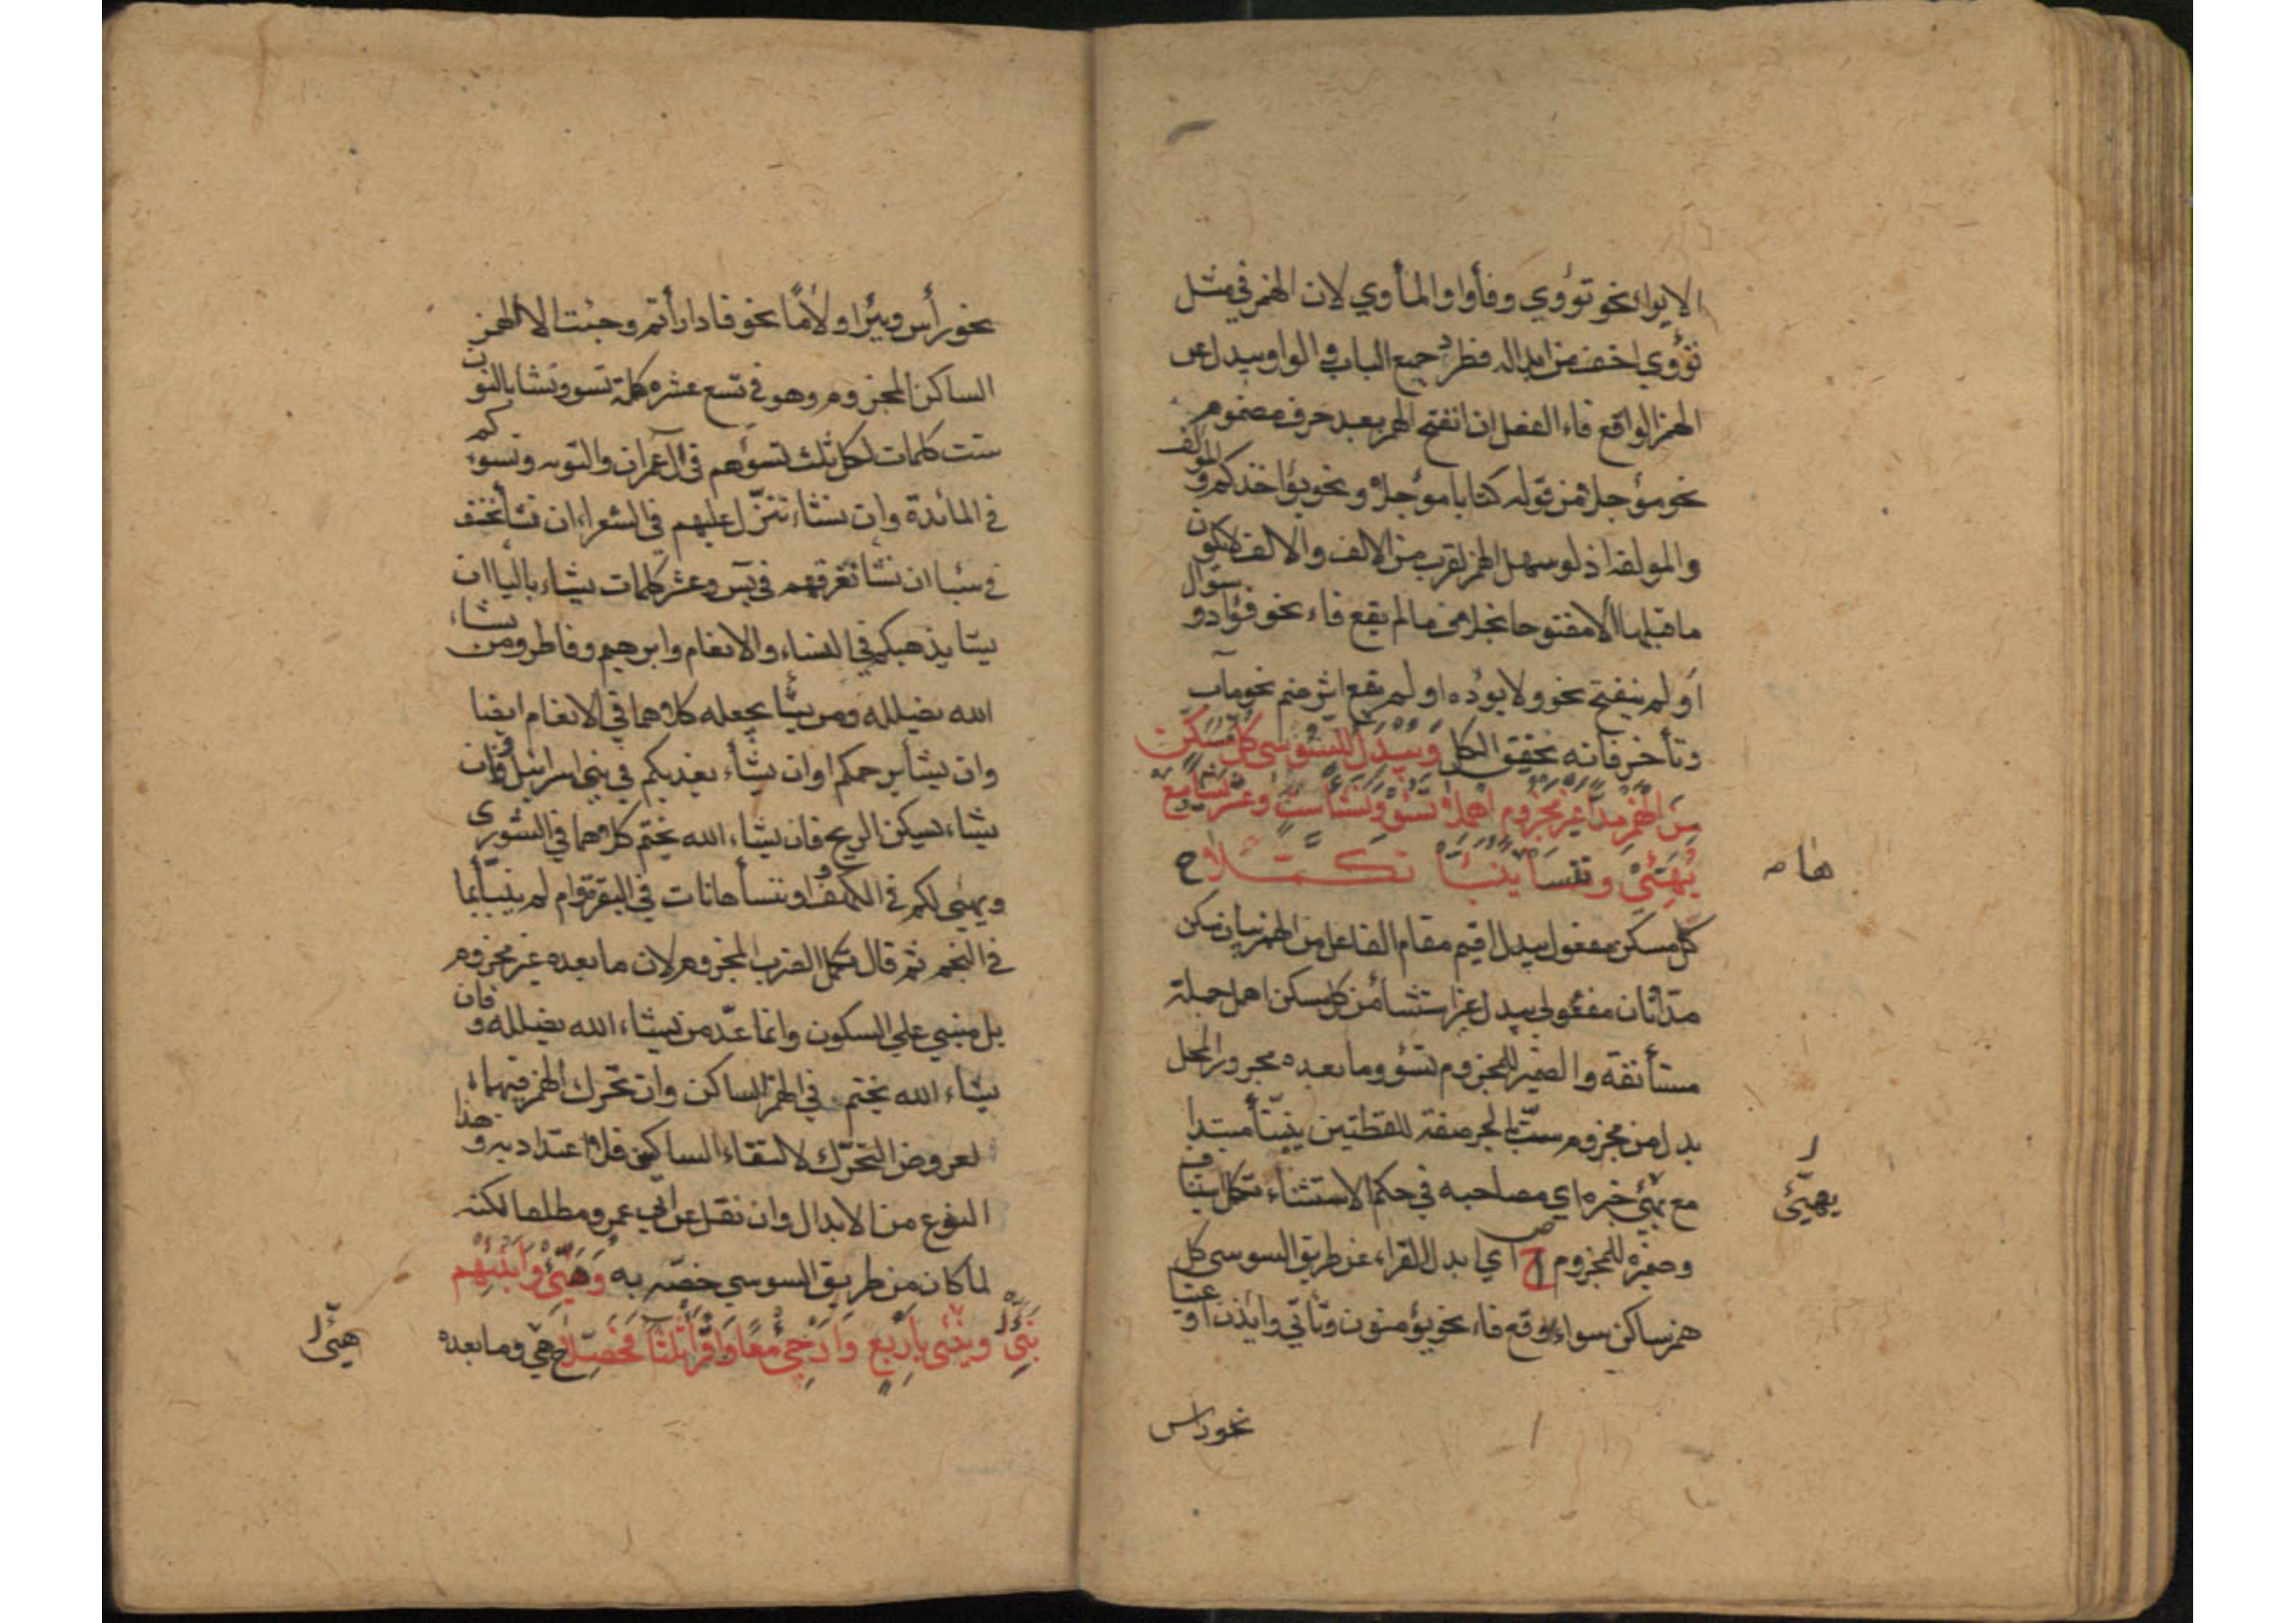 الايواء نحو تؤوي وفأووا والمأوي لان الهمز في مثل
تؤوي اخف من ابداله فطرد جميع الباب في الواو ويبدل عن
الهمز الواقع فاء الفعل ان انفتح الهمز بعد حرف مضموم
نحو مؤجلا من قوله كتابا مؤجلا ونحو يؤاخذكم والمؤلفة
والمولفة اذ لو سهل الهمز لقرب من الالف والالف لا يكون
ما قبلها الا مفتوحا بخلاف ما لم يقع فاء نحو فؤاد وسؤال
او لم ينفتح نحو ولا يؤده او لم يقع اثر ضم نحو مآب
وتأخر فانه تحقيق الكل وَيُبْدَلُ لِلسُّوسِي كُلُّ مُسَكَّنٍ
مِنَ الْهَمْزِ مَدًّا غَيْرَ مَجْزُومٍ اهْمِلَا تَسُؤْ وَنَشَأْ سِتٌّ وَعَشْرُ يَشَأْ وَمَعْ
يُهَيِّئْ وَنَنْسَأْهَا يُنَبَّأْ تَكَمَّلَا ح
هاصح
كل مسكن مفعول يبدل اقيم مقام الفاعل من الهمز بيان مسكن
مدا ثان مفعولي يبدل غير استثنا من كل مسكن اهمل جملة
مستأنفة والضمير للمجزوم تسؤ وما بعده مجرور المحل
بدل من مجزوم ست بالجر صفة للفظتين ينبأ مبتدا
مع يهيئ خبره اي مصاحبه في حكم الاستثناء تكمل استيناف
يهيئ
وضميره للمجزوم ص ح اي ابدل القراء عن طريق السوسي كل
همز ساكن سواء وقع فاء نحو يؤمنون وتأتي وايذن او عينا
نحو راس
نحو رأس وبئر او لاما نحو فادارأتم وجئت الا الهمز
الساكن المجزوم وهو في تسع عشره كلمة تسؤ ونشا بالنون
ست كلمات لكل ثلث تسؤهم في آل عمران والتوبه وتسؤكم
في المائدة وان نشاء ننزل عليهم في الشعرا ان نشأ نخسف
في سبا ان نشا نغرقهم في يس وعشر كلمات يشاء باليا ان
يشا يذهبكم في النساء والانعام وابرهيم وفاطر ومن يشاء
الله يضلله ومن يشأ يجعله كلاهما في الانعام ايضا
وان يشا يرحمكم او ان يشأ يعذبكم في بني اسرائيل وان
يشاء يسكن الريح فان يشاء الله يختم كلاهما في الشوري
ويهيئ لكم في الكهف او ننسأها نات في البقرة وام لم ينبأ بما
في النجم ثم قال تكمل الضرب المجزوم لان ما بعده غير مجزوم
بل مبني علي السكون وانما عد من يشاء الله يضلله وفان
يشاء الله يختم في الهمز الساكن وان تحرك الهمز فيهما
لعروض التحرك لالتقاء الساكنين فلا اعتداد به وهذا
النوع من الابدال وان نقل عن ابي عمرو مطلقا لكنه
لما كان من طريق السوسي خصه به وَهَيِّئْ وَأَنْبِئْهُمْ
وَنَبِّئْ بِأَرْبَعٍ وَأَرْجِئْ مَعًا وَاقْرَأْ ثَلَاثًا فَحَصِّلَا ح هيئ وما بعده
هيئ